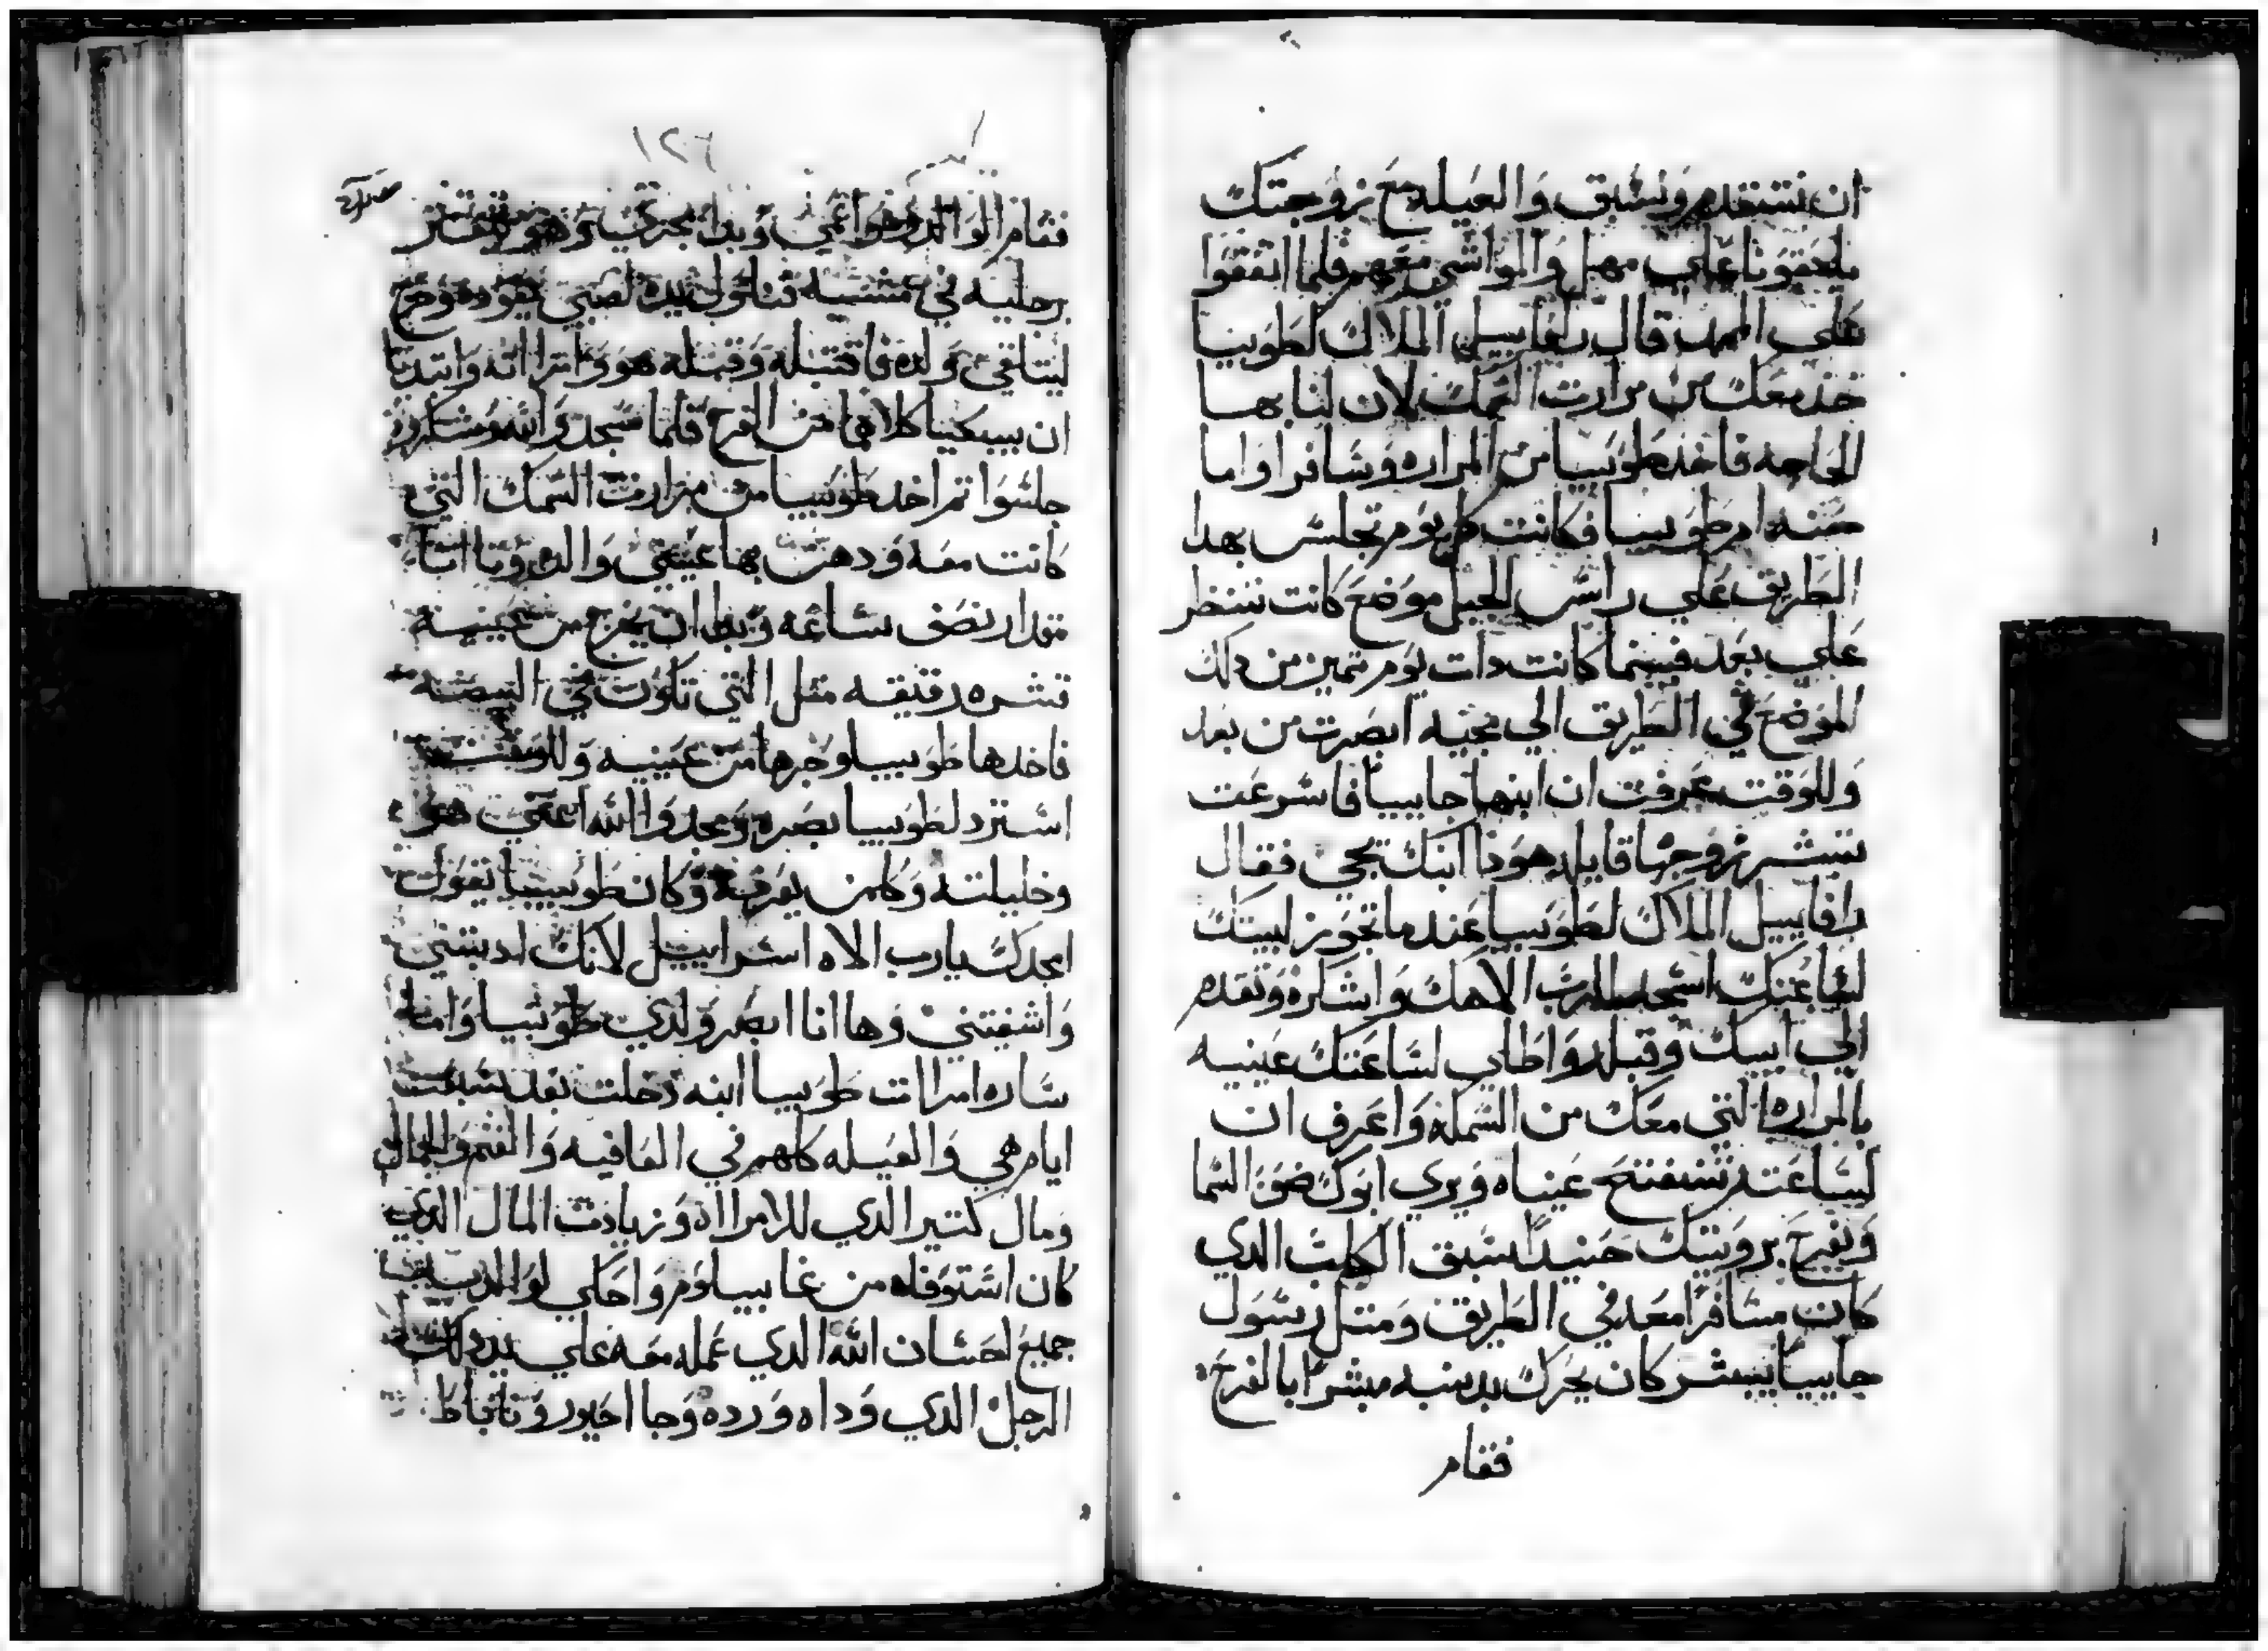 ان نستقدم ونسبق والعيله مع زوجتك
يلحقونا علي مهل والمواشي معهم فلما اتفقوا
علي المهل قال رافاييل الملاك لطوبيا
خذ معك من مرارت السمك لان لنا بها
الحاجه فاخد طوبيا من المراره وسافرا واما
حنه ام طوبيا فكانت كل يوم تجلس بهدا
الطريق علي راس الجبل موضع كانت تنظر
علي بعد فبينما كانت دات يوم تميز من دلك
الموضع في الطريق الي مجيه ابصرت من بعد
وللوقت عرفت ان ابنها جاييا فاسرعت
تبشر زوجها قايله هودا ابنك يجي فقال
رافاييل الملاك لطوبيا عندما تجوز لبيتك
لساعتك اسجد للرب الاهك واشكره وتقدم
الي ابيك وقبله واطلي لساعتك عينيه
بالمراره التي معك من السمكه واعرف ان
لساعته ستنفتح عيناه ويري ابوك ضو السما
ويفرح برويتك حنيدا سبق الكلب الدي
كان مسافرا معه في الطريق ومتل رسول
جاييا يبشر كان يحرك بدنبه مبشرا بالفرح
فقام
١٢٦
فقام الوالد وهو اعمي وبدا يجري وهو يتعتر
برجليه في مشيه فناول يده لصبي يقوده وخرج
ليتلقي ولده فاقتبله وقبله هو وامراته وابتديا
ان يبكيا كلاهما من الفرح فلما سجدوا لله وشكروه
جلسوا تم اخد طوبيا من مرارت السمك التي
كانت معه ودهن بها عيني والده وتانا
مقدار نصف ساعه وبدا ان يخرج من عينيه
قشره رقيقه متل التي تكون في البيضه
فاخدها طوبيا وجرها من عينيه وللوقت
استرد لطوبيا بصره ومجدوا الله اعني هو
وخليلته وكلمن يعرفه وكان طوبيا يقول
امجدك يارب الاه اسراييل لانك ادبتني
واشفيتني وها انا ابصر ولدي طوبيا واما
ساره امرات طوبيا ابنه دخلت بعد سبعت
ايام هي والعيله كلهم في العافيه والغنم والجمال
ومال كتير الدي للامراه وزيادت المال الدي
كان استوفاه من غابيلوم واحكي لوالديه
جميع احسان الله الدي عمله معه علي يد دلك
الرجل الدي وداه ورده وجا احيور وناباط